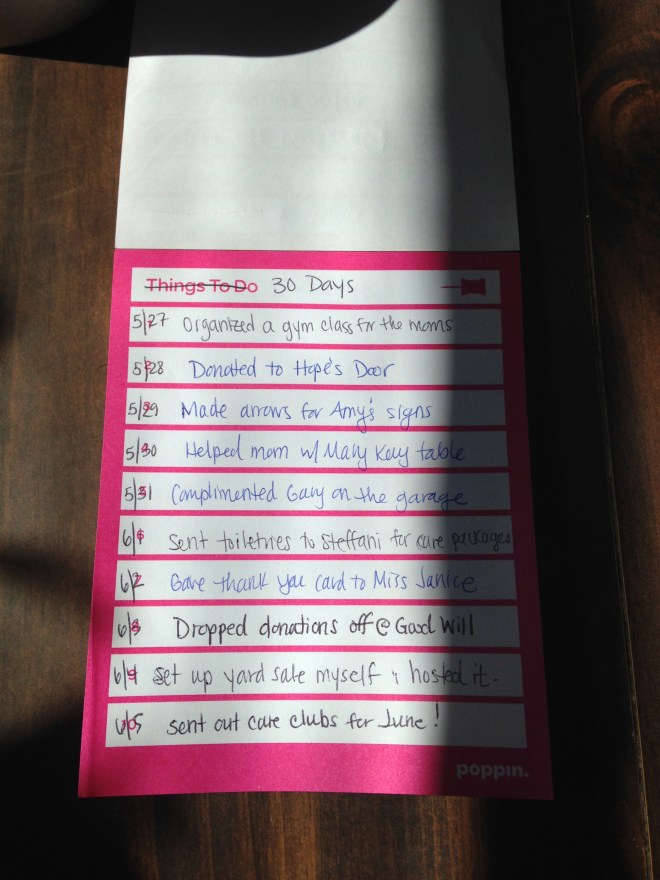 Things To Do 30 Days
5/27 Organized a gym class for the moms
5/28 Donated to Hope's Door
5/29 Made arrows for Amy's signs
5/30 Helped mom w/ Mary Kay table
5/31 Complimented Gary on the garage
6/1 Sent toiletries to Steffani for care packages
6/2 Gave thank you card to Miss Janice
6/3 Dropped donations off @ Good Will
6/4 Set up yard sale myself & hosted it.
6/5 Sent out care clubs for June!
poppin.